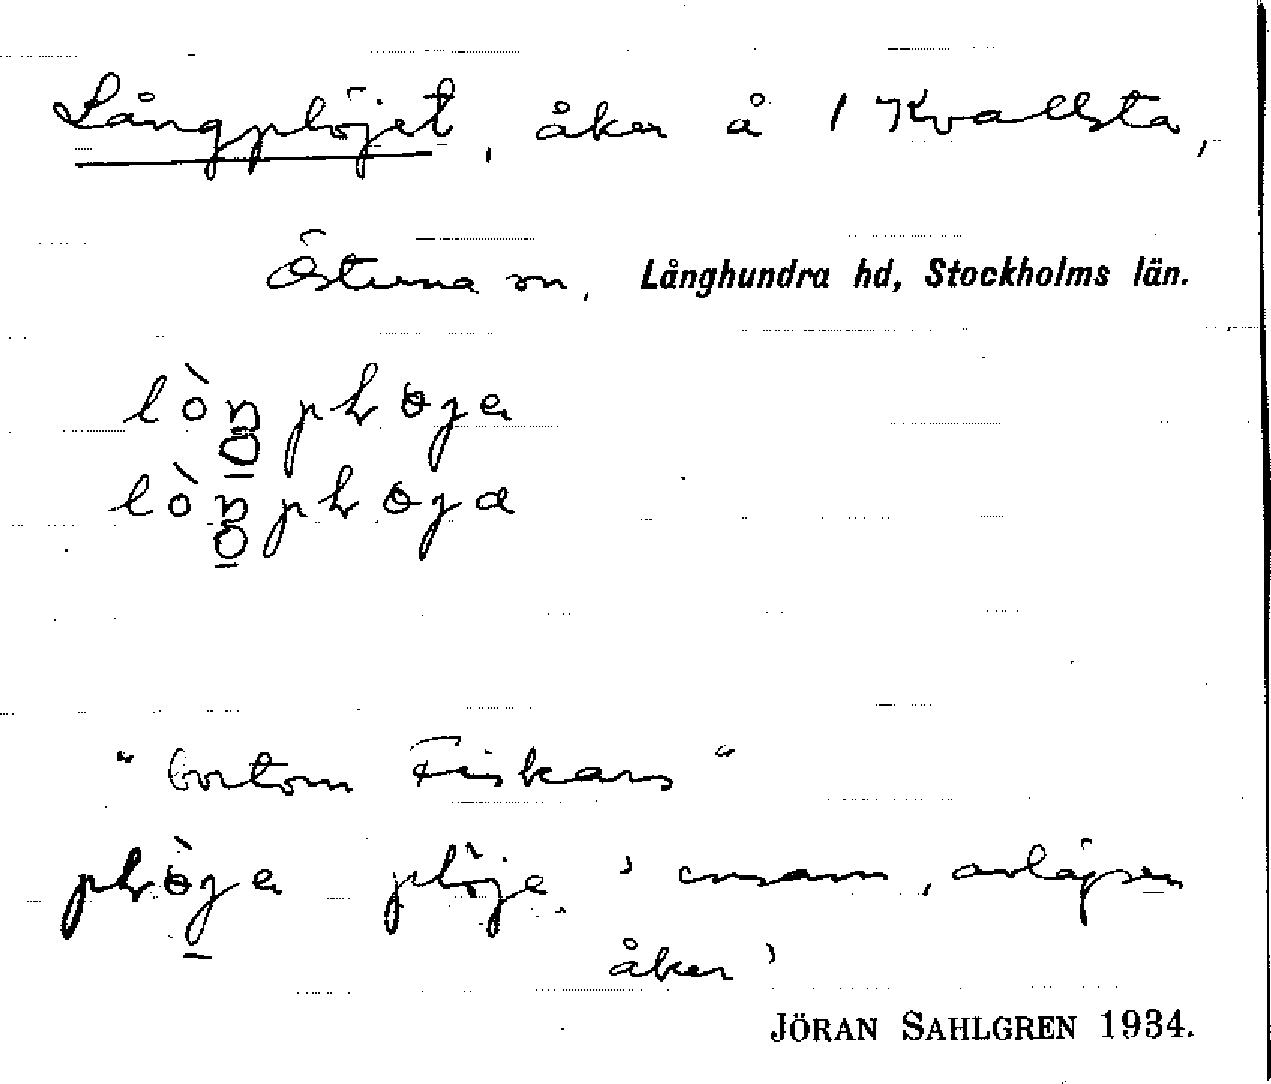 Långplöjet, åker å 1 Kvallsta,
Östuna sn, Långhundra hd, Stockholms län.
"bortom Fiskars"
plöje 'ensam, avlägsen
åker'
JÖRAN SAHLGREN 1934.